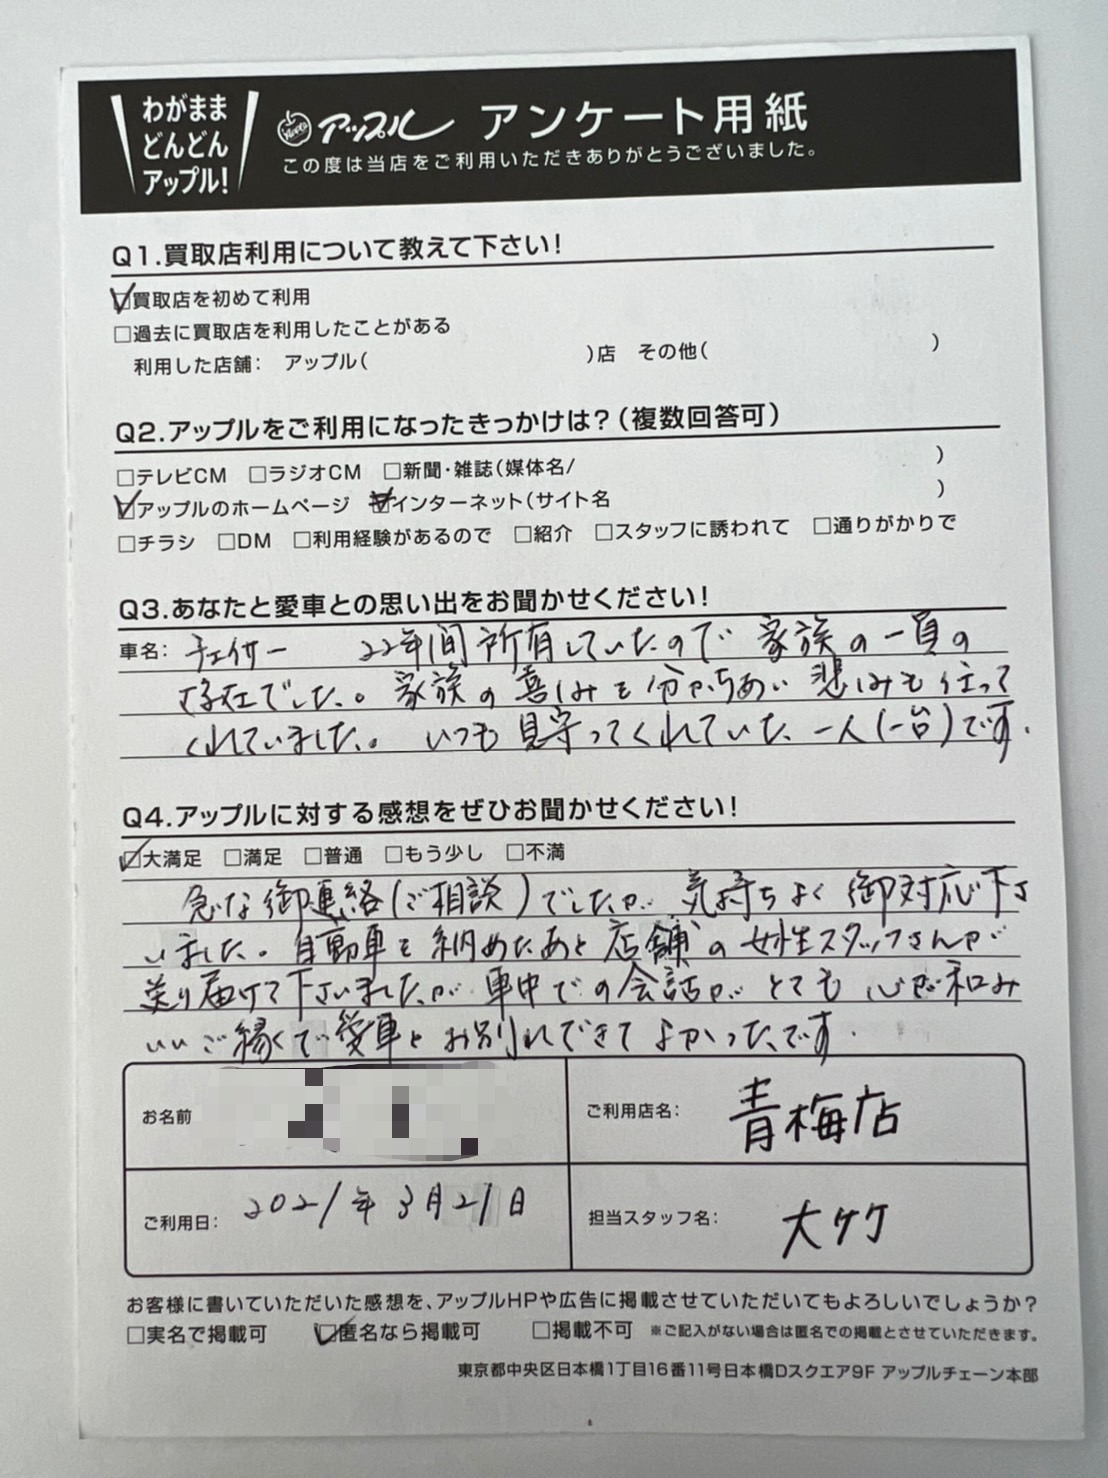 わがまま
どんどん
アップル!
アップル アンケート用紙
この度は当店をご利用いただきありがとうございました。
Q1.買取店利用について教えて下さい!
☑買取店を初めて利用
□過去に買取店を利用したことがある
利用した店舗: アップル( )店 その他( )
Q2.アップルをご利用になったきっかけは?(複数回答可)
□テレビCM □ラジオCM □新聞・雑誌(媒体名/ )
☑アップルのホームページ ☑インターネット(サイト名 )
□チラシ □DM □利用経験があるので □紹介 □スタッフに誘われて □通りがかりで
Q3.あなたと愛車との思い出をお聞かせください!
車名: チェイサー 22年間所有していたので 家族の一員の
存在でした。家族の喜しみも分かちあい 悲しみも任って
くれていました。いつも見守ってくれていた 一人(一台)です.
Q4.アップルに対する感想をぜひお聞かせください!
☑大満足 □満足 □普通 □もう少し □不満
急な御連絡(ご相談)でしたが 気持ちよく御対応下さ
いました。自動車を納めたあと店舗の女性スタッフさんが
送り届けて下さいましたが 車中での会話が とても 心が和み
いいご縁で愛車とお別れできてよかったです.
お名前
ご利用店名: 青梅店
ご利用日: 2021年3月21日
担当スタッフ名: 大ケケ
お客様に書いていただいた感想を、アップルHPや広告に掲載させていただいてもよろしいでしょうか?
□実名で掲載可 ☑匿名なら掲載可 □掲載不可 ※ご記入がない場合は匿名での掲載とさせていただきます。
東京都中央区日本橋1丁目16番11号日本橋Dスクエア9F アップルチェーン本部